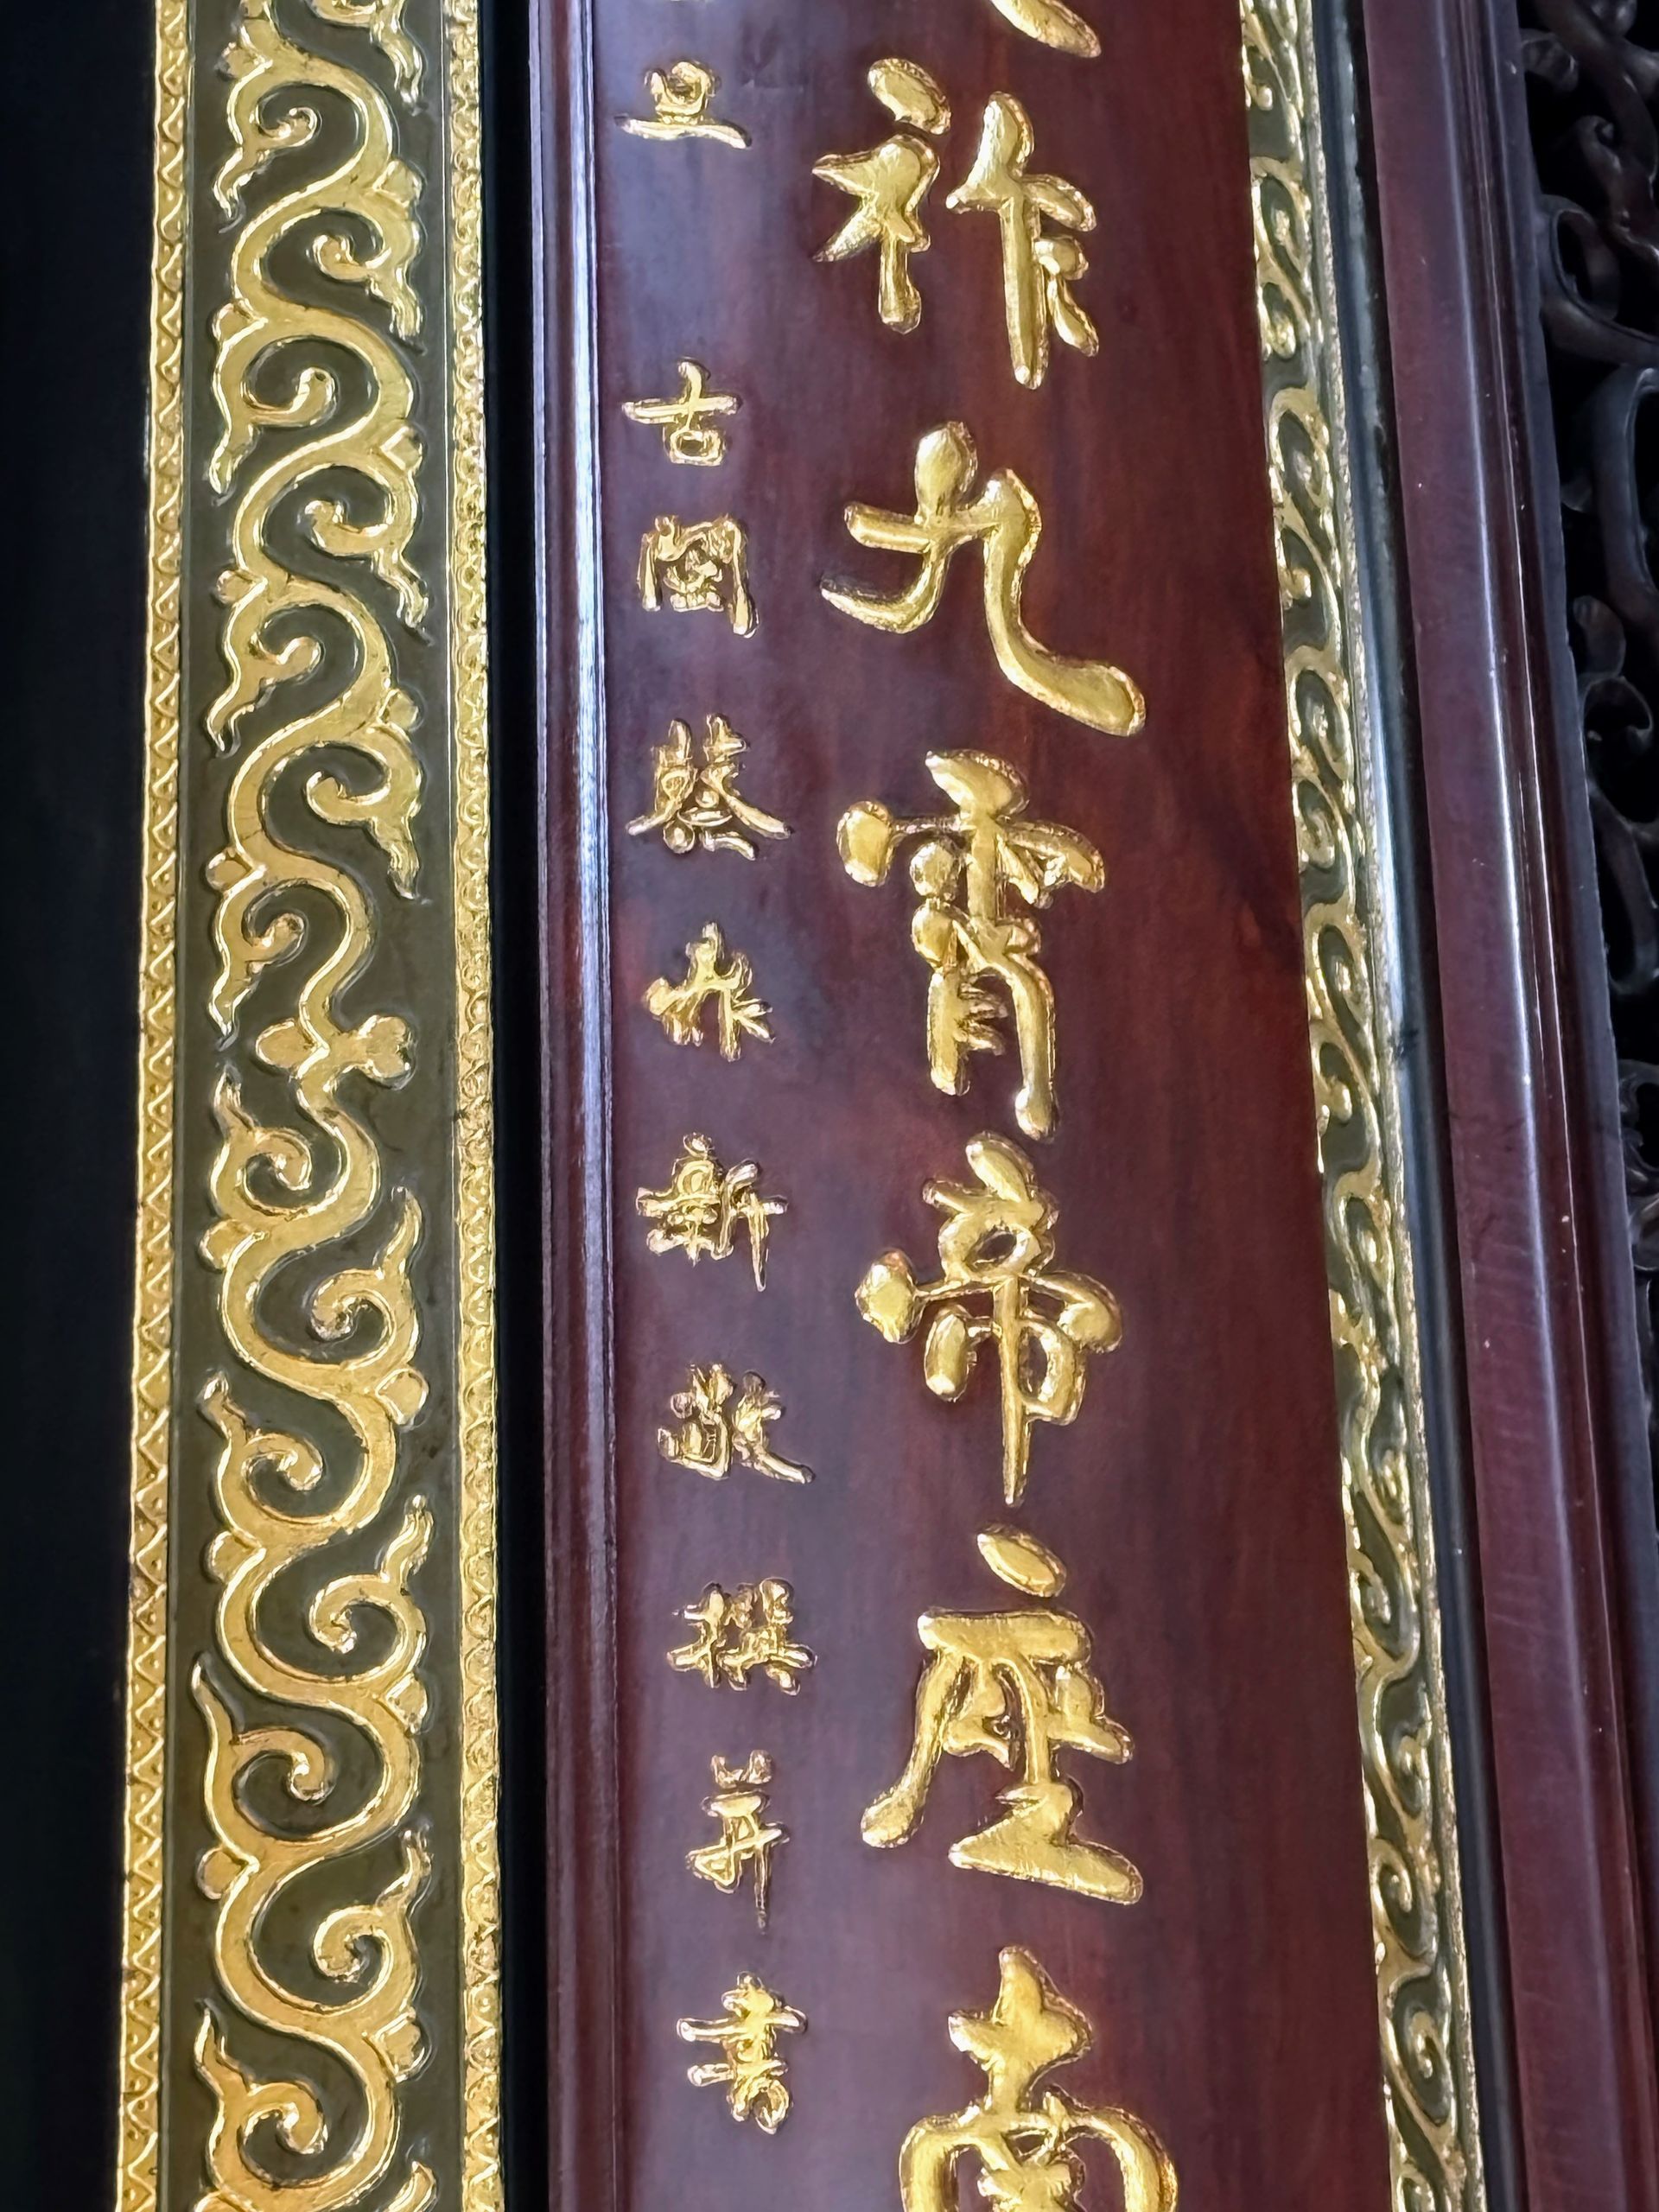 祚九霄帝座南
旦 古閩蔡作新敬撰并書